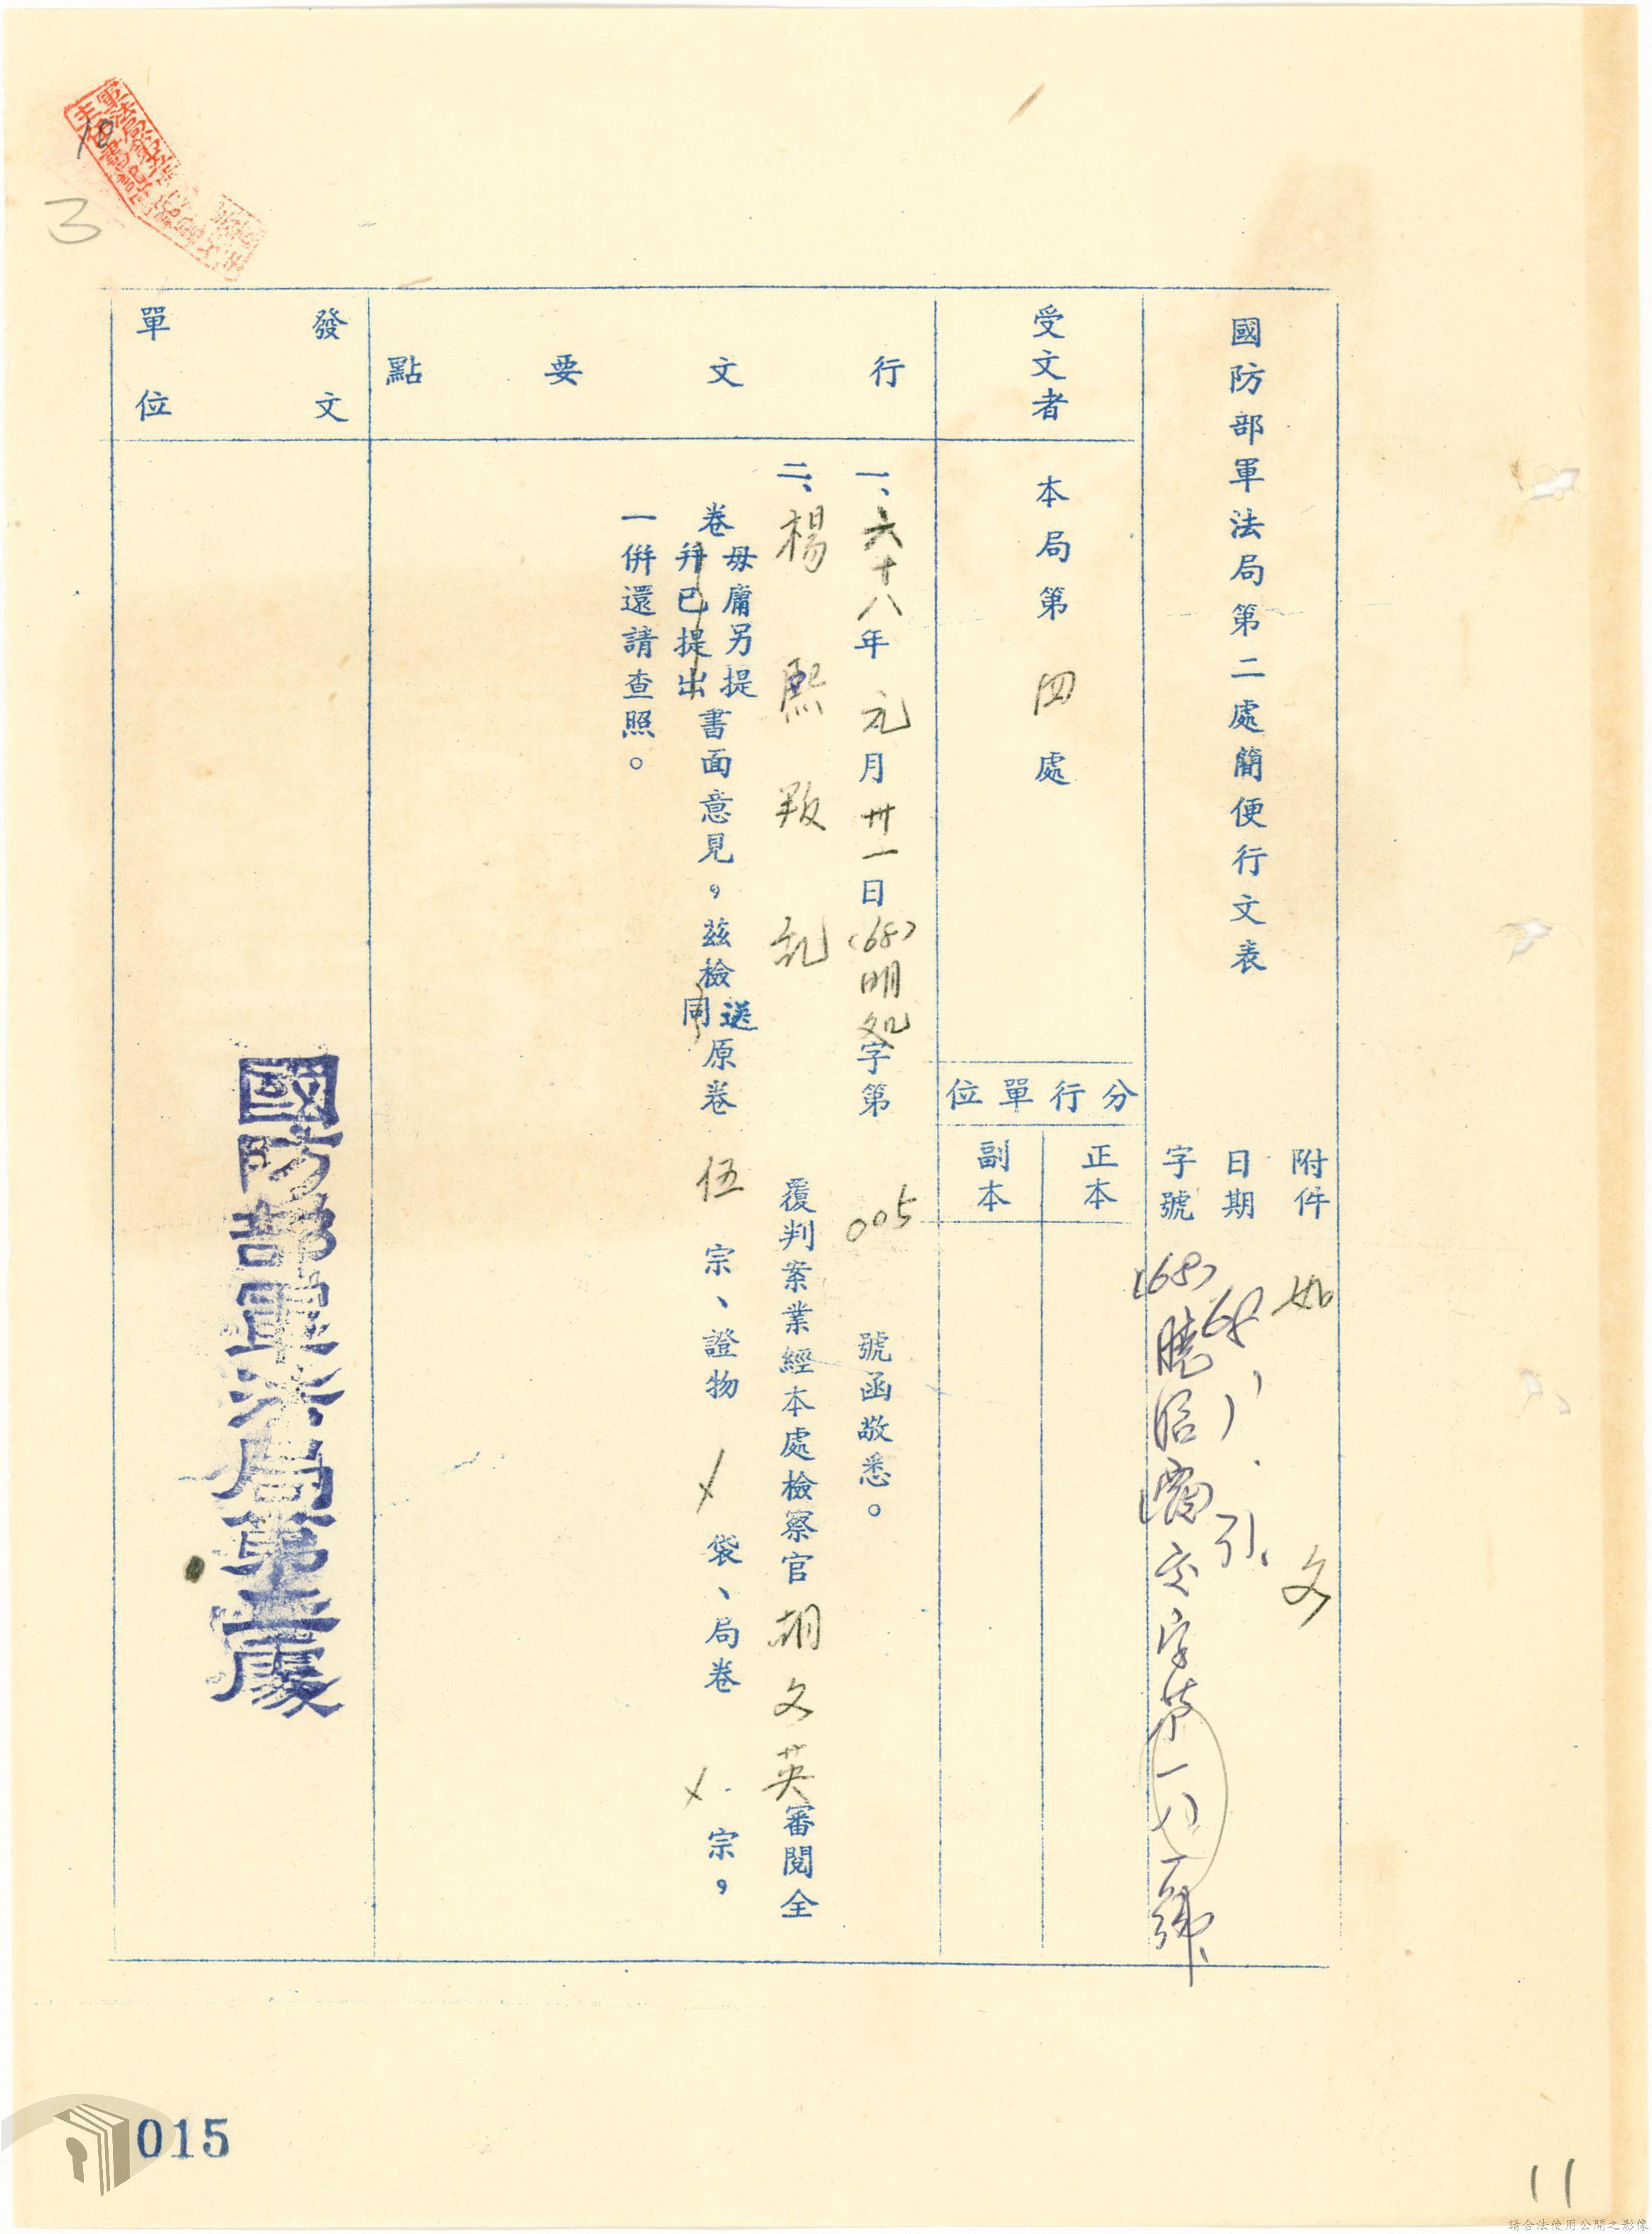 國防部軍法局第二處簡便行文表
附件 如 文
日期
字號
受文者
本局第四處
分行單位
正本
副本
行文要點
一、六十八年元月卅一日(68)明処字第 005 號函敬悉。
二、楊熙叛乱覆判案業經本處檢察官胡文英審閱全
卷 毋庸另提
并已提出
書面意見，茲檢
送
同
原卷 伍 宗、證物 X 袋、局卷 X 宗，
一併還請查照。
發文單位
國防部軍法局第二處
18
3
015
11
請合法使用公開之影像